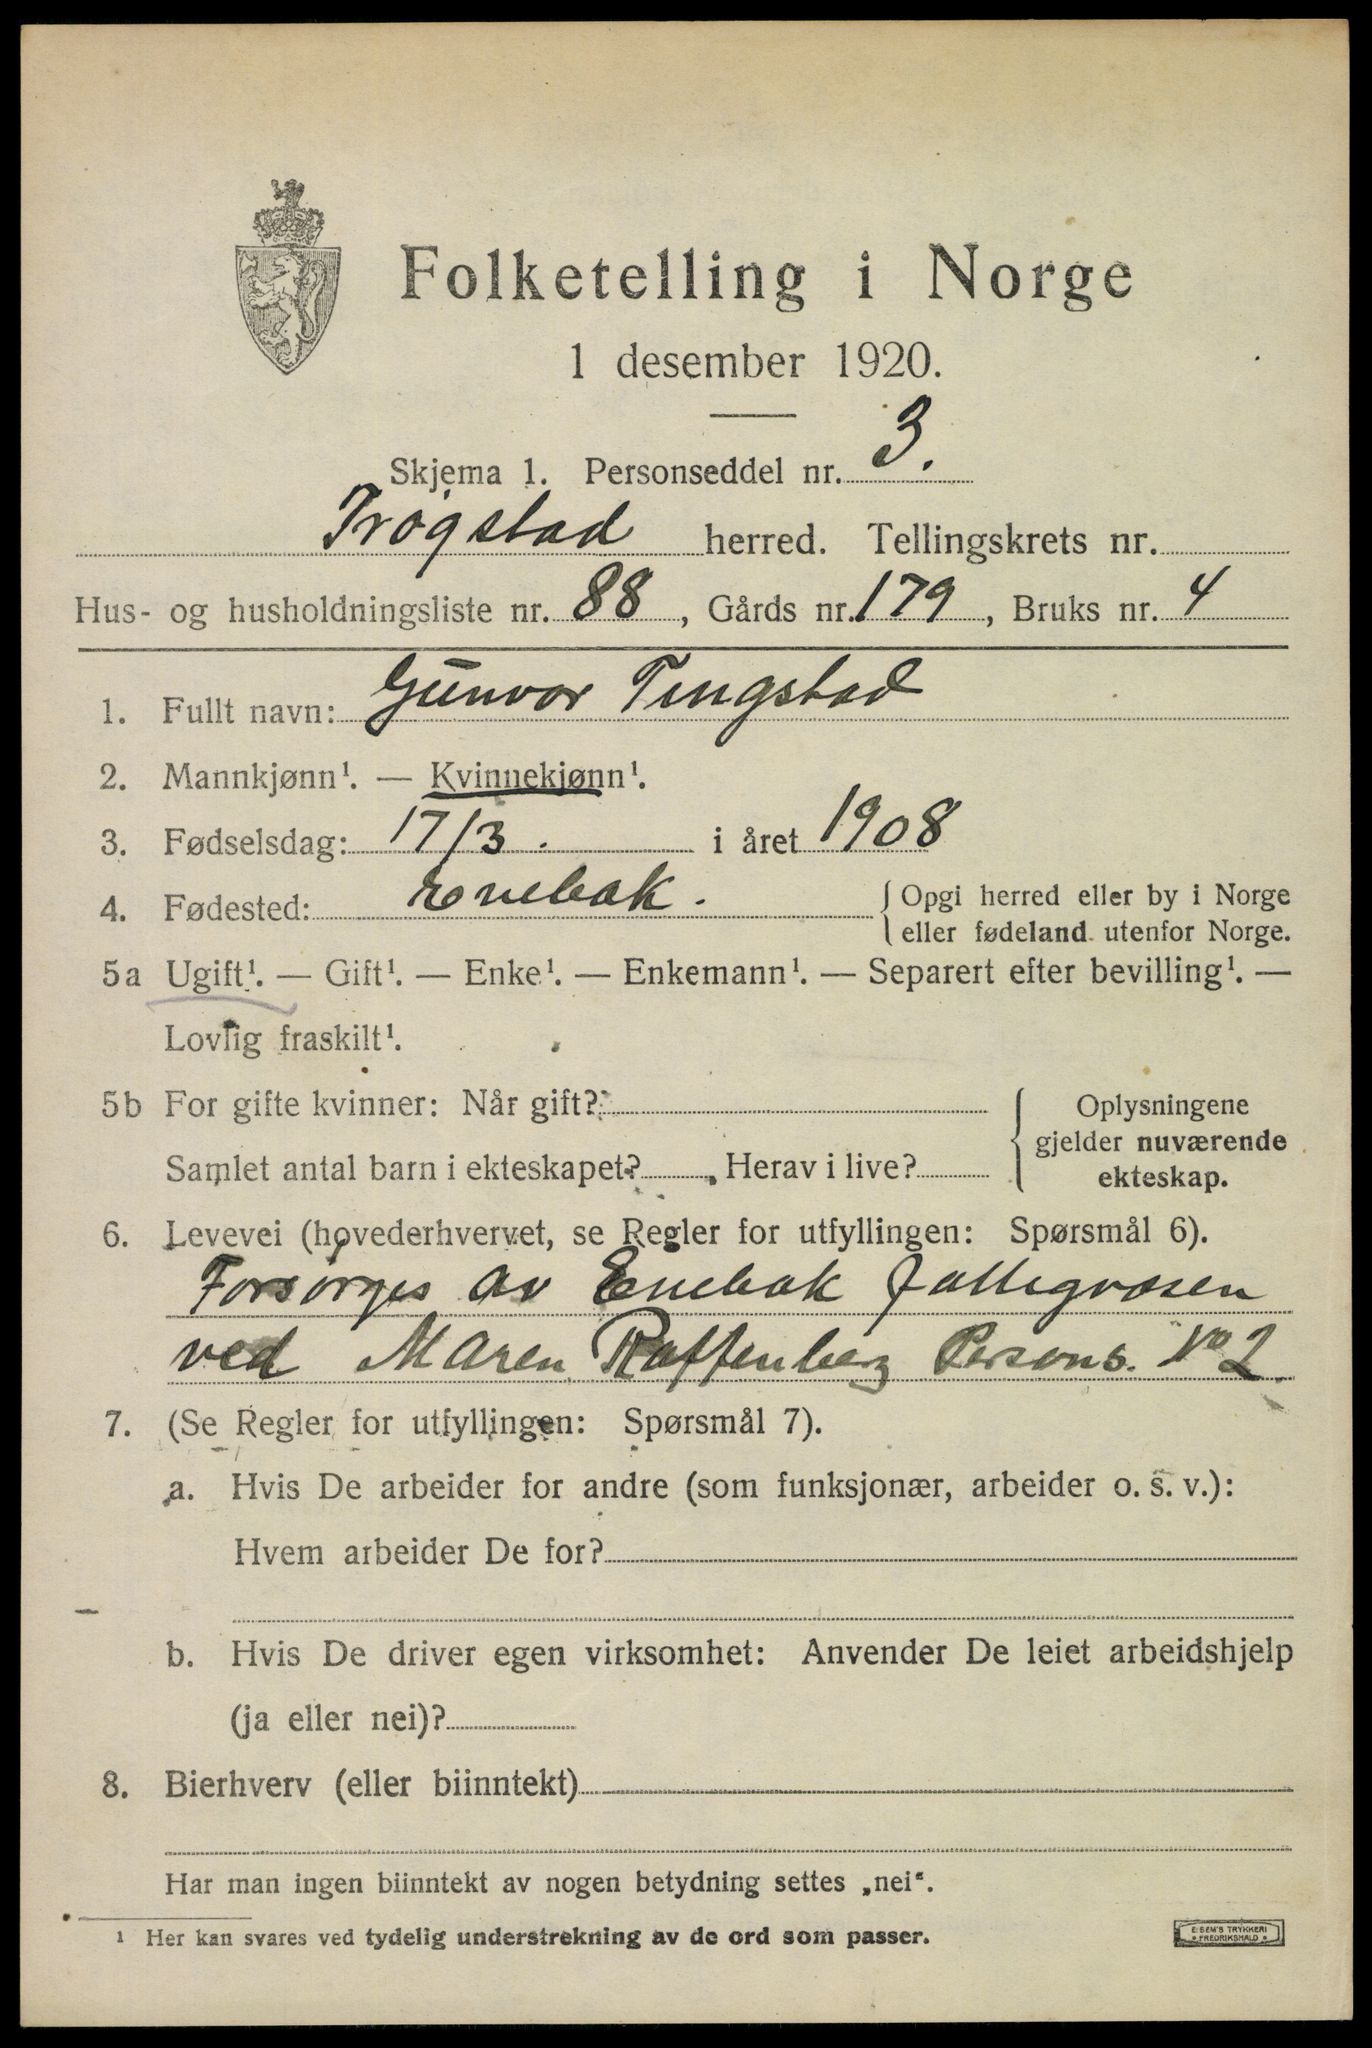 Folketelling i Norge
1 desember 1920.
Skjema 1. Personseddel nr. 3.
Trøgstad herred. Tellingskrets nr.
Hus- og husholdningsliste nr. 88, Gårds nr. 179, Bruks nr. 4
1. Fullt navn: Gunvor Tingstad
2. Mannkjønn¹. — Kvinnekjønn¹.
3. Fødselsdag: 17/3. i året 1908
4. Fødested: Enebak. { Opgi herred eller by i Norge
eller fødeland utenfor Norge.
5a Ugift¹. — Gift¹. — Enke¹. — Enkemann¹. — Separert efter bevilling¹. —
Lovlig fraskilt¹.
5b For gifte kvinner: Når gift?
Samlet antal barn i ekteskapet? Herav i live?
{ Oplysningene
gjelder nuværende
ekteskap.
6. Levevei (hovederhvervet, se Regler for utfyllingen: Spørsmål 6).
Forsørges av Enebak fattigvæsen
ved Maren Raffenberg Persons. No 2.
7. (Se Regler for utfyllingen: Spørsmål 7).
a. Hvis De arbeider for andre (som funksjonær, arbeider o. s. v.):
Hvem arbeider De for?
b. Hvis De driver egen virksomhet: Anvender De leiet arbeidshjelp
(ja eller nei)?
8. Bierhverv (eller biinntekt)
Har man ingen biinntekt av nogen betydning settes „nei".
¹ Her kan svares ved tydelig understrekning av de ord som passer.
E. SEM'S TRYKKERI
* FREDRIKSHALD *